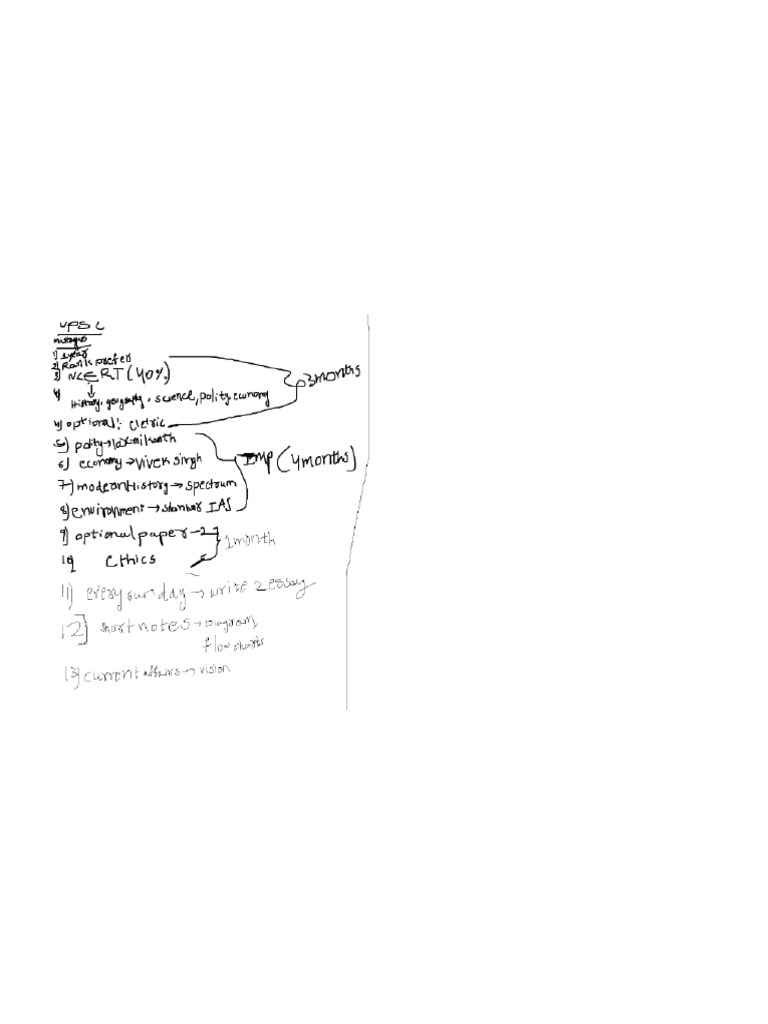 UPSC
1) 1 year
2) Rank prefer
3) NCERT (40%)
History, geography, science, polity, economy
3 months
4) optional:
5) polity → laxmikanth
6) economy → Vivek singh
IMP (4 months)
7) modern History → spectrum
8) environment → shankar IAS
9) optional paper - 2
1 month
10) Ethics
11) every sunday → write 2 essay
12] short notes → Diagram,
flow charts
13) current affairs → vision